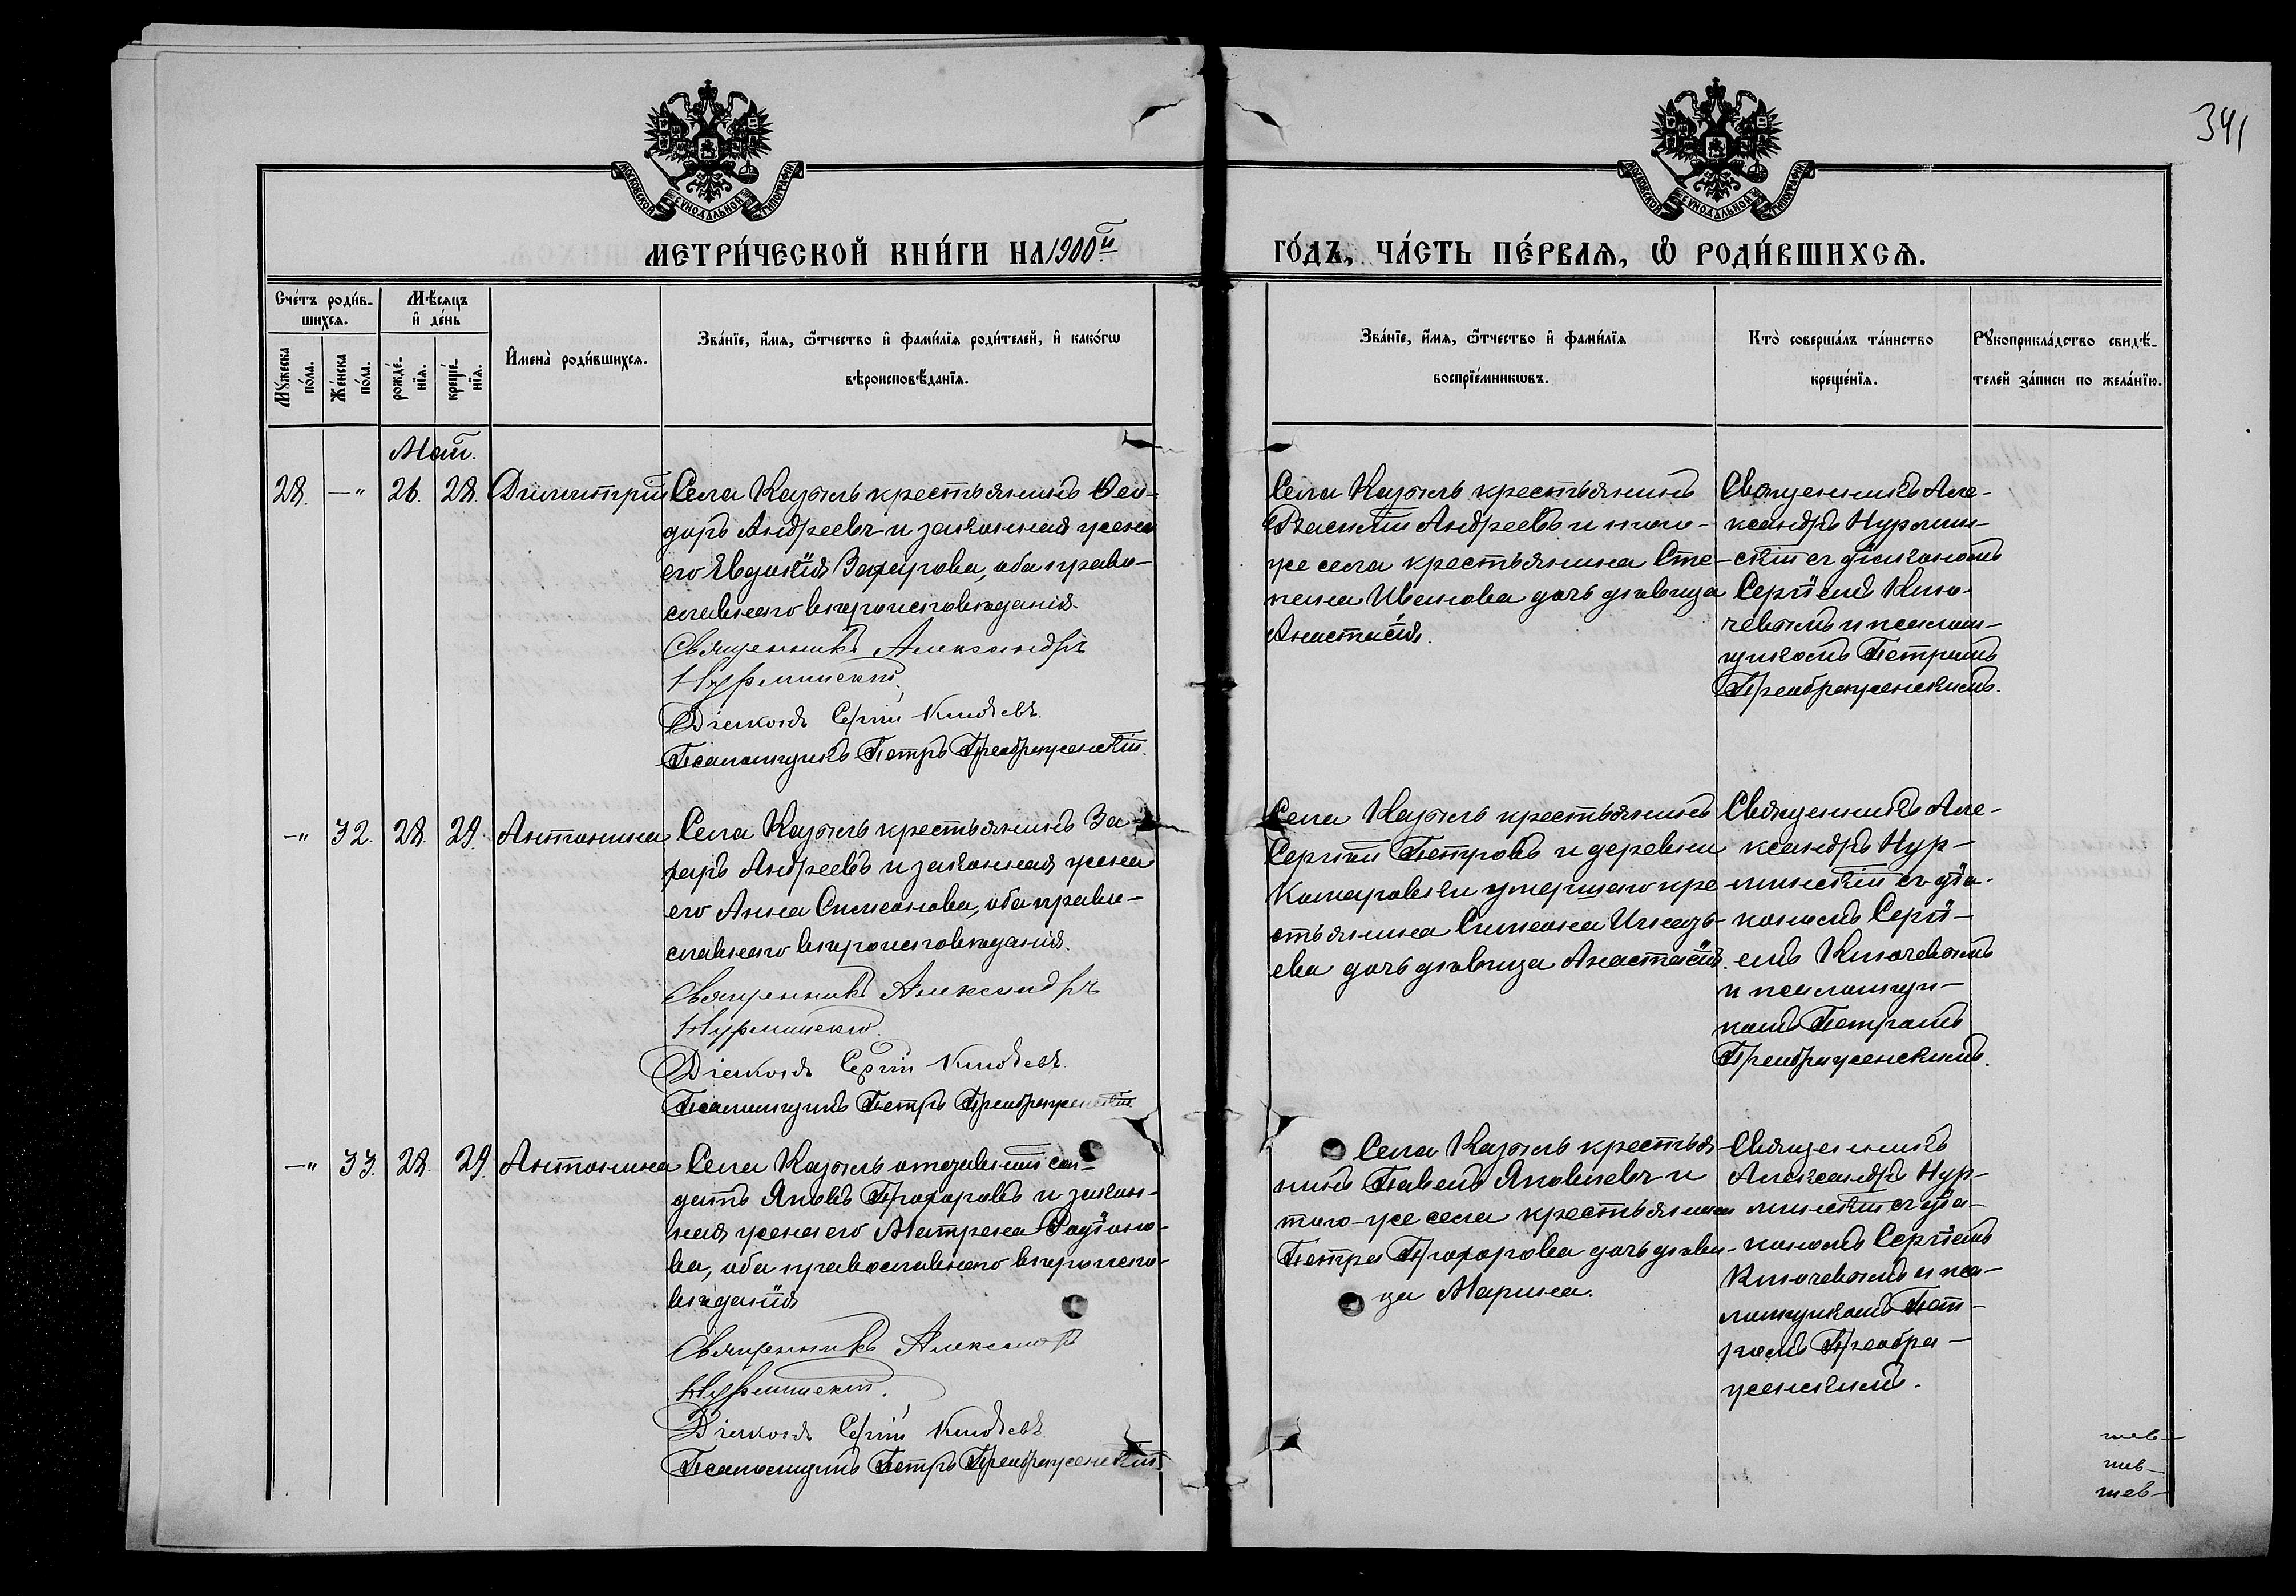 341
МОСКОВСКОЙ СѴНОДАЛЬНОЙ ТИПОГРАФІИ
МОСКОВСКОЙ СѴНОДАЛЬНОЙ ТИПОГРАФІИ
МЕТРИ́ЧЕСКОЙ КНИ́ГИ НА 1900й ГО́ДЪ, ЧА́СТЬ ПЕ́РВАѦ, Ѽ РОДИ́ВШИХСѦ.
Сче́тъ роди́в-
шихсѧ.
Мꙋ́жеска
по́ла.
Же́нска
по́ла.
Мѣ́сѧцъ
и҆ де́нь
рожде́-
нїѧ.
креще́-
нїѧ.
И҆мена̀ роди́вшихсѧ.
Зва́нїе, и҆́мѧ, ѻ҆́тчество и҆ фами́лїѧ роди́телей, и҆ како́гѡ
вѣроисповѣ́данїѧ.
Зва́нїе, и҆́мѧ, ѻ҆́тчество и҆ фами́лїѧ
воспрїе́мникѡвъ.
Кто̀ соверша́лъ та́инство
креще́нїѧ.
Рꙋкоприкла́дство свидѣ́-
телей за́писи по жела́нїю.
Май.
28. —" 26. 28. Димитрій
Села Казыль крестьянинъ Ѳео-
доръ Андреевъ и законная жена
его Евдокія Захарова, оба право-
славнаго вѣроисповѣданія.
Священникъ Александръ
Нурминскій.
Діаконъ Сергій Ключевъ.
Псаломщикъ Петръ Преображенскій.
Села Казыль крестьянинъ
Василій Андреевъ и того-
же села крестьянина Сте-
пана Иванова дочь дѣвица
Анастасія.
Священникъ Але-
ксандръ Нурмин-
скій съ діакономъ
Сергіемъ Клю-
чевымъ и псалом-
щикомъ Петромъ
Преображенскимъ.
—" 32. 28. 29. Антонина
Села Казыль крестьянинъ За-
харъ Андреевъ и законная жена
его Анна Симеонова, оба право-
славнаго вѣроисповѣданія.
Священникъ Александръ
Нурминскій.
Діаконъ Сергій Ключевъ.
Псаломщикъ Петръ Преображенскій.
Села Казыль крестьянинъ
Сергій Петровъ и деревни
Комаровки умершаго кре-
стьянина Симеона Игнать-
ева дочь дѣвица Анастасія.
Священникъ Але-
ксандръ Нур-
минскій съ діа-
кономъ Сергі-
емъ Ключевымъ
и псаломщи-
комъ Петромъ
Преображенскимъ.
—" 33. 28. 29. Антонина
Села Казыль отставной сол-
датъ Яковъ Прохоровъ и закон-
ная жена его Матрена Родіоно-
ва, оба православнаго вѣроиспо-
вѣданія
Священникъ Александръ
Нурминскій.
Діаконъ Сергій Ключевъ
Псаломщикъ Петръ Преображенскій.
Села Казыль крестья-
нинъ Павелъ Яковлевъ и
того-же села крестьянина
Петра Прохорова дочь дѣви-
ца Марина.
Священникъ
Александръ Нур-
минскій съ діа-
кономъ Сергіемъ
Ключевымъ и пса-
ломщикомъ Пет-
ромъ Преобра-
женскимъ.